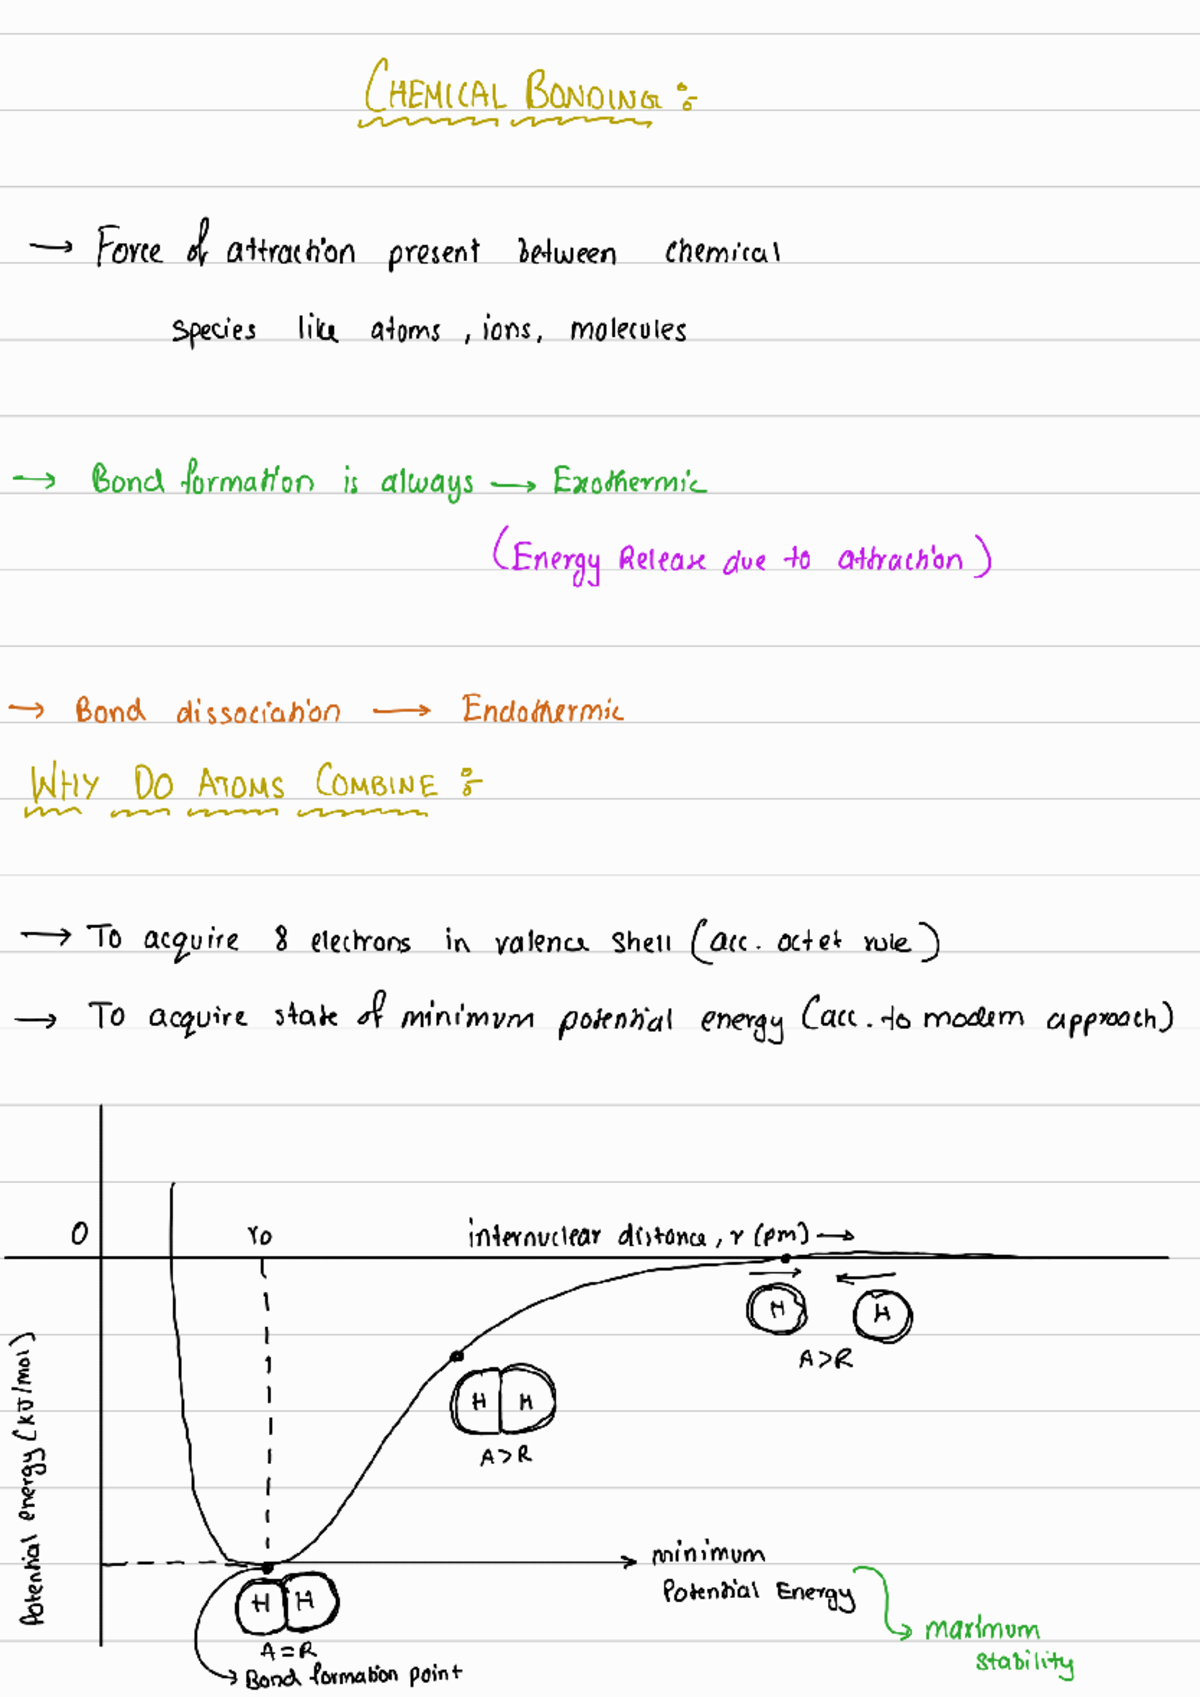 CHEMICAL BONDING :-
→ Force of attraction present between chemical
species like atoms , ions, molecules
→ Bond formation is always → Exothermic
(Energy Release due to attraction)
→ Bond dissociation → Endothermic
WHY DO ATOMS COMBINE :-
→ To acquire 8 electrons in valence shell (acc. octet rule)
→ To acquire state of minimum potential energy (acc. to modern approach)
0
r₀
internuclear distance, r (pm) →
H
H
A>R
H H
A>R
Potential energy (kJ/mol)
minimum
Potential Energy
maximum
stability
H H
A=R
Bond formation point